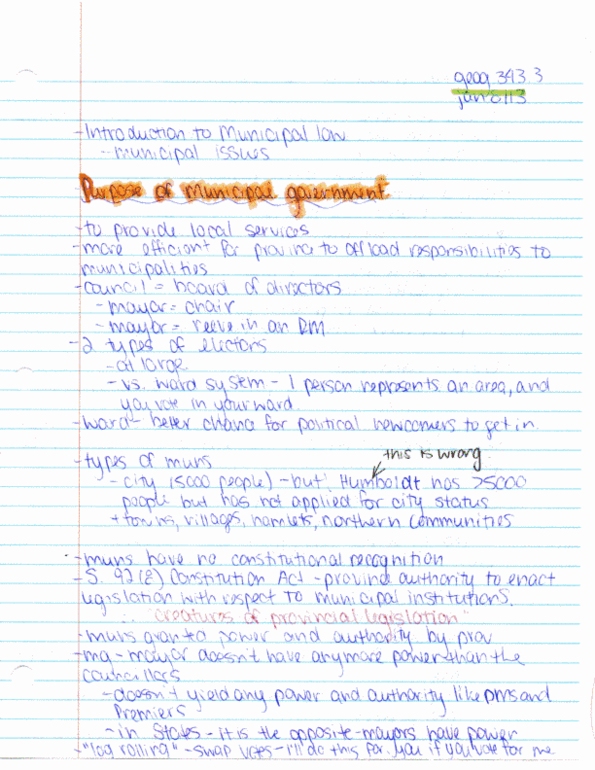 geog 343.3
jan 8/13
- Introduction to Municipal law
- municipal issues
Purpose of municipal government
- to provide local services
- more efficient for province to offload responsibilities to
municipalities
- council = board of directors
- mayor = chair
- mayor = reeve in an RM
- 2 types of electors
- at large
- vs. ward system - 1 person represents an area, and
you vote in your ward.
- ward - better chance for political newcomers to get in.
this is wrong
- types of muns
- city (5000 people) - but! Humboldt has >5000
people but has not applied for city status
+ towns, villages, hamlets, northern communities
- muns have no constitutional recognition
- S. 92(8) Constitution Act - provincial authority to enact
legislation with respect to municipal institutions.
∴ "creatures of provincial legislation"
- muns granted power and authority by prov
- mg - mayor doesn't have anymore power than the
councillors
- doesn't yield any power and authority like PMs and
Premiers
- in States - it is the opposite - mayors have power
- "log rolling" - swap votes - i'll do this for you if you vote for me